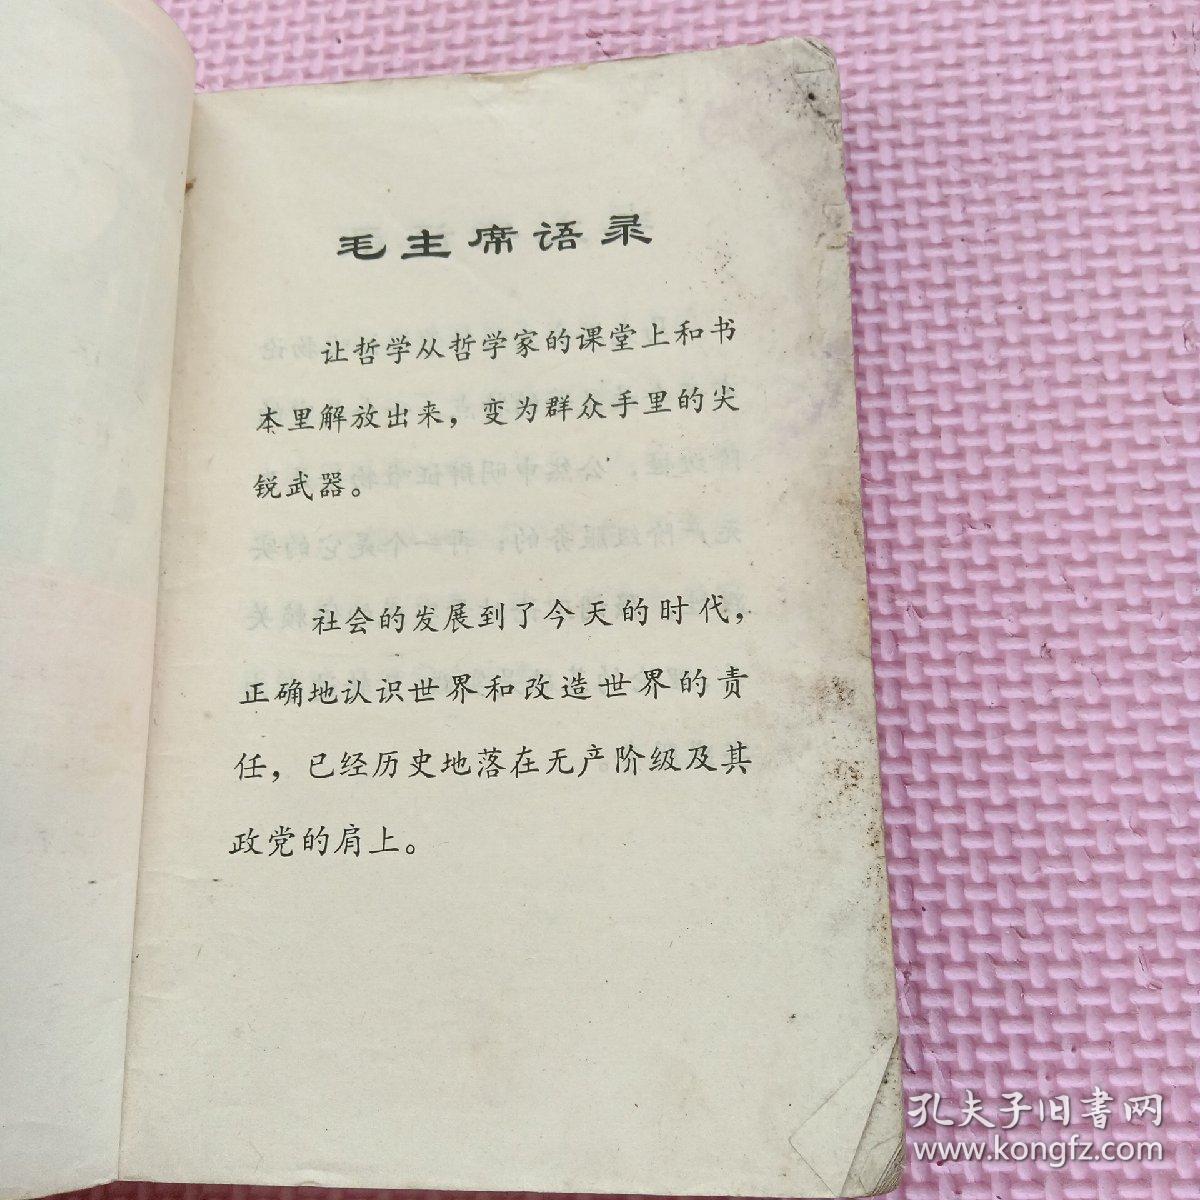 毛主席语录
让哲学从哲学家的课堂上和书
本里解放出来，变为群众手里的尖
锐武器。
社会的发展到了今天的时代，
正确地认识世界和改造世界的责
任，已经历史地落在无产阶级及其
政党的肩上。
孔夫子旧書网
www.kongfz.com